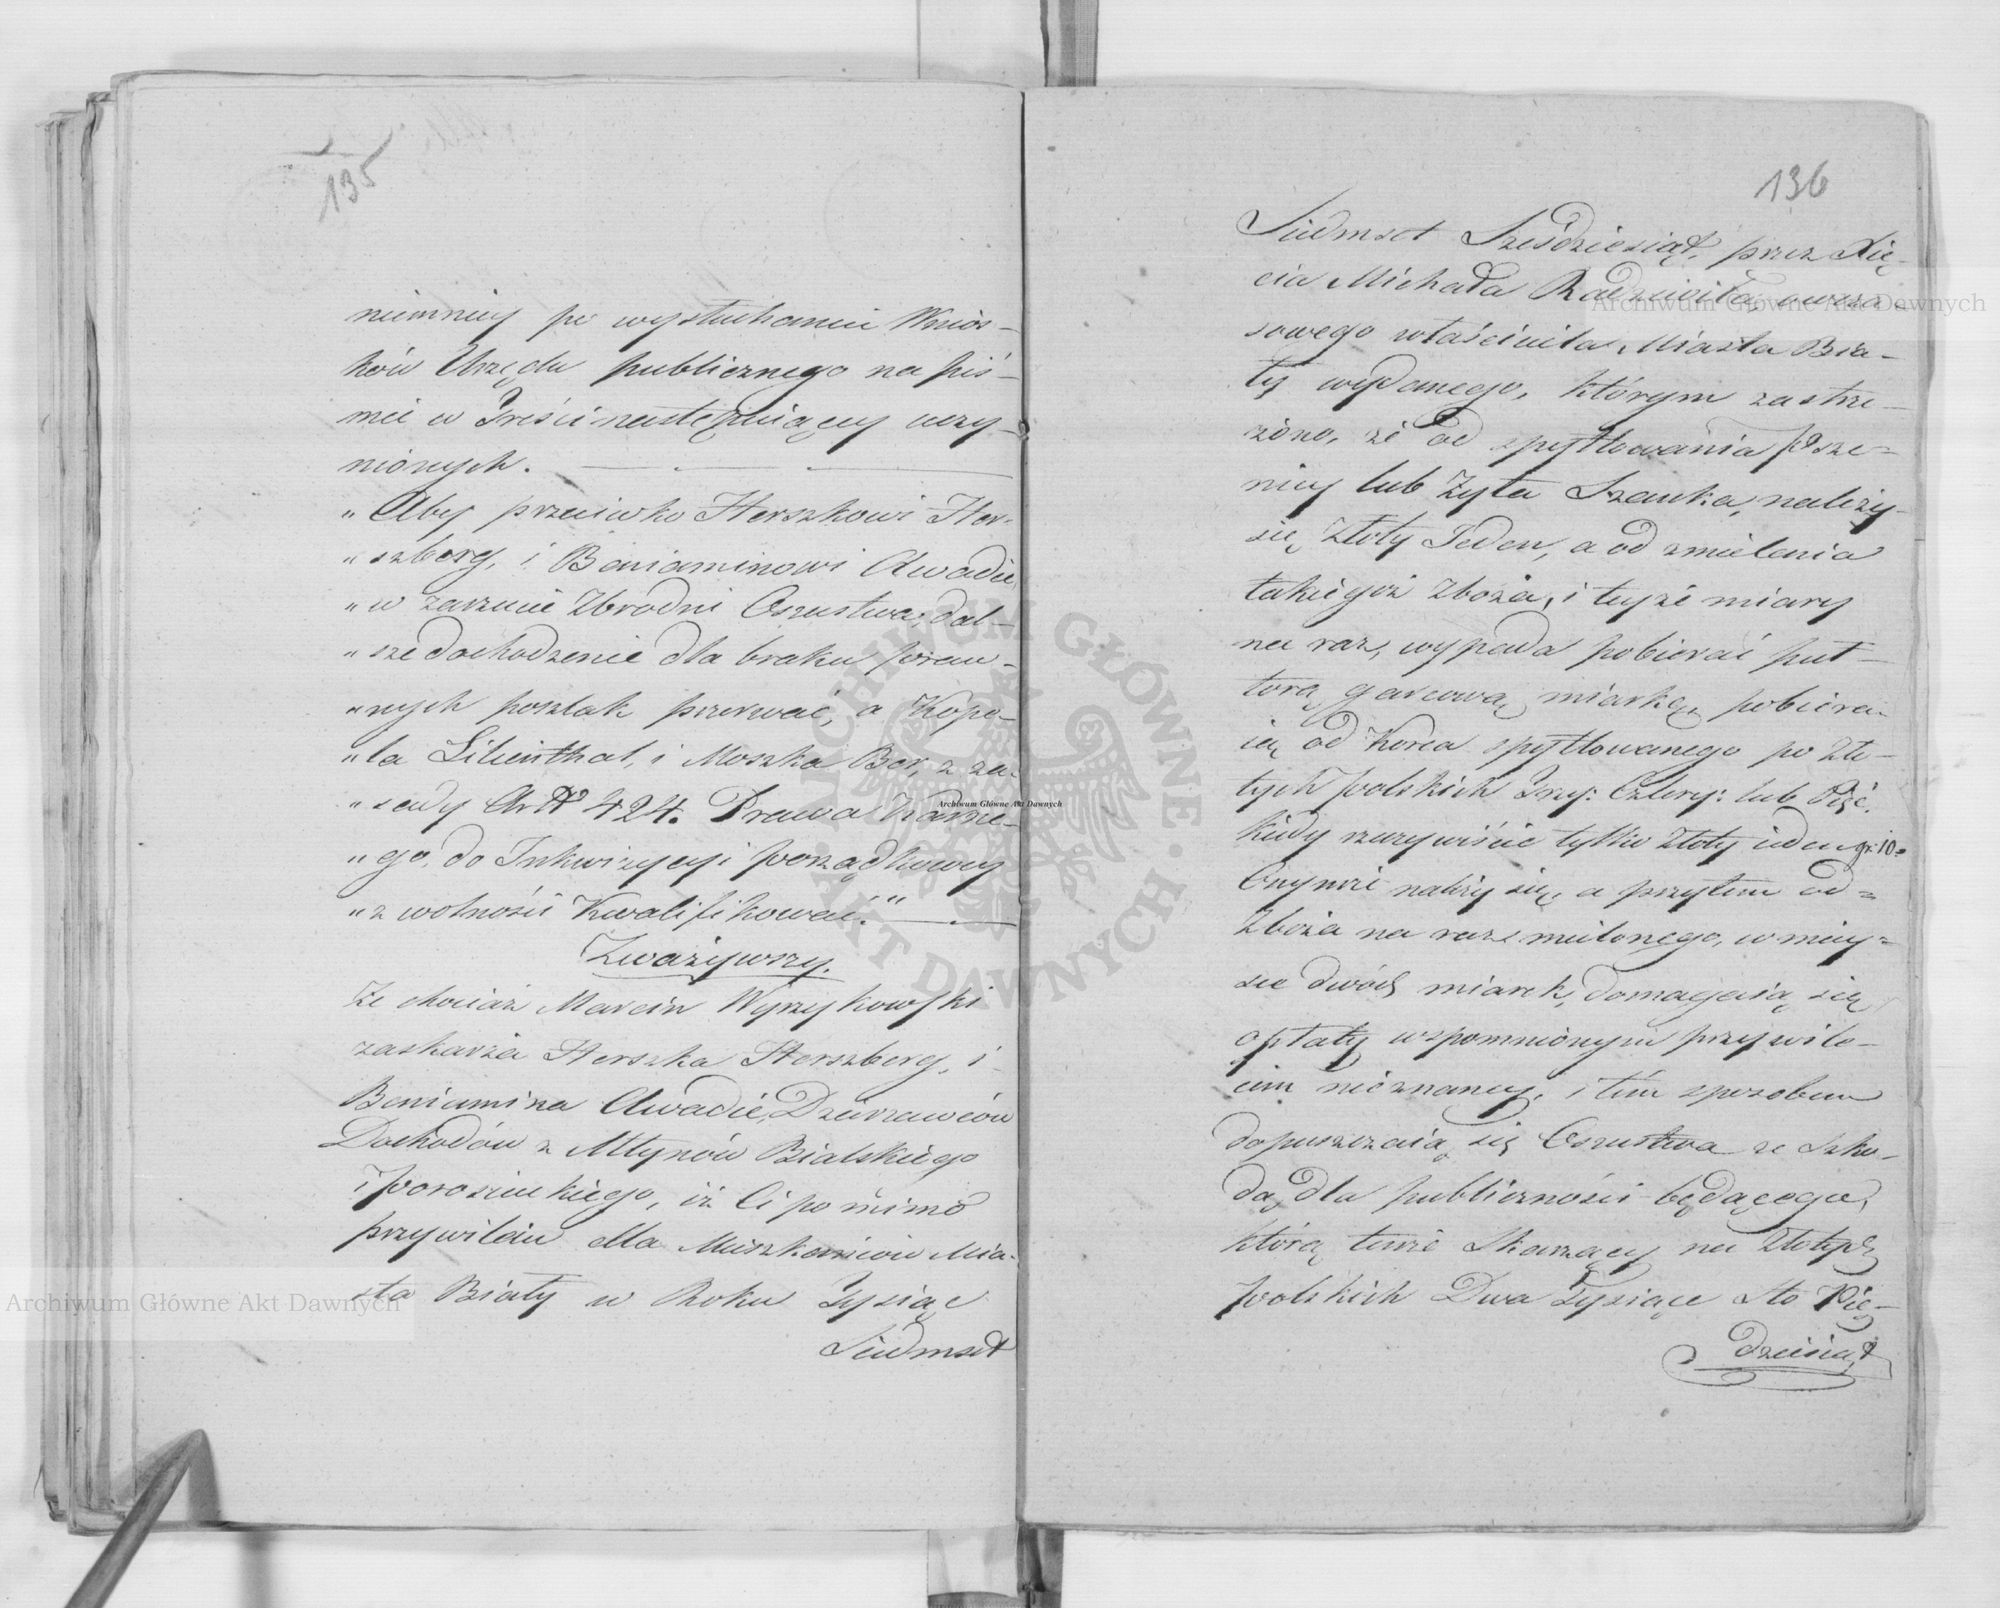 135
niemniey po wysłuchaniu Wnios-
ków Urzędu publicznego na piś-
mie w Treści następuiącey uczy-
nionych.
„Aby przeciwko Herszkowi Her-
„szberg, i Beniaminowi Awadie
„w zarzucie Zbrodni Oszustwa, dal-
„sze dochodzenie dla braku praw-
„nych poszlak przerwać, a Kope-
„la Lilienthal, i Moszka Bor, z za-
„sady Artł 424. Prawa Karne-
„go, do Inkwizycyi porządkowey
„z wolności Kwalifikować.“
Zważywszy.
że chociaż Marcin Wyrzykowski
zaskarża Herszka Herszberg, i
Beniamina Awadie, Dzierzawców
Dochodów z Młynów Bialskiego
i Porosiuckiego, iż Ci pomimo
przywileiu dla Mieszkańców Mia-
sta Biały w Roku Tysiąc
Siedmset
136
Siedmset Sześdziesiąt, przez Xię-
cia Michała Radziwiłła owcza-
sowego właściciela Miasta Bia-
ły wydanego, którym zastrze-
żono, że od spytlowania Psze-
nicy lub Żyta Szanka, należy
się Złoty Jeden, a od zmielenia
takiegoż Zboża, i teyże miary
na raz, wypada pobierać puł-
torą garcową miarkę, pobiera-
ią od Korca spytlowanego po Zło-
tych polskich Trzy: Cztery: lub Pięć,
kiedy rzeczywiście tylko Złoty ieden gr: 10.
Onymże należy się, a przytem od
Zboża na raz mielonego, w miey-
sce dwóch miarek, domagaią się
opłaty wspomnionym przywile-
iem nieznaney, i tim sposobem
dopuszczaią się Oszustwa ze Szko-
dą dla publiczności będącego,
którą tenże Skarzący na Złotych
polskich Dwa Tysiące Sto Pię-
dziesiąt
Archiwum Główne Akt Dawnych
Archiwum Główne Akt Dawnych
Archiwum Główne Akt Dawnych
ARCHIWUM GŁÓWNE · AKT DAWNYCH ·